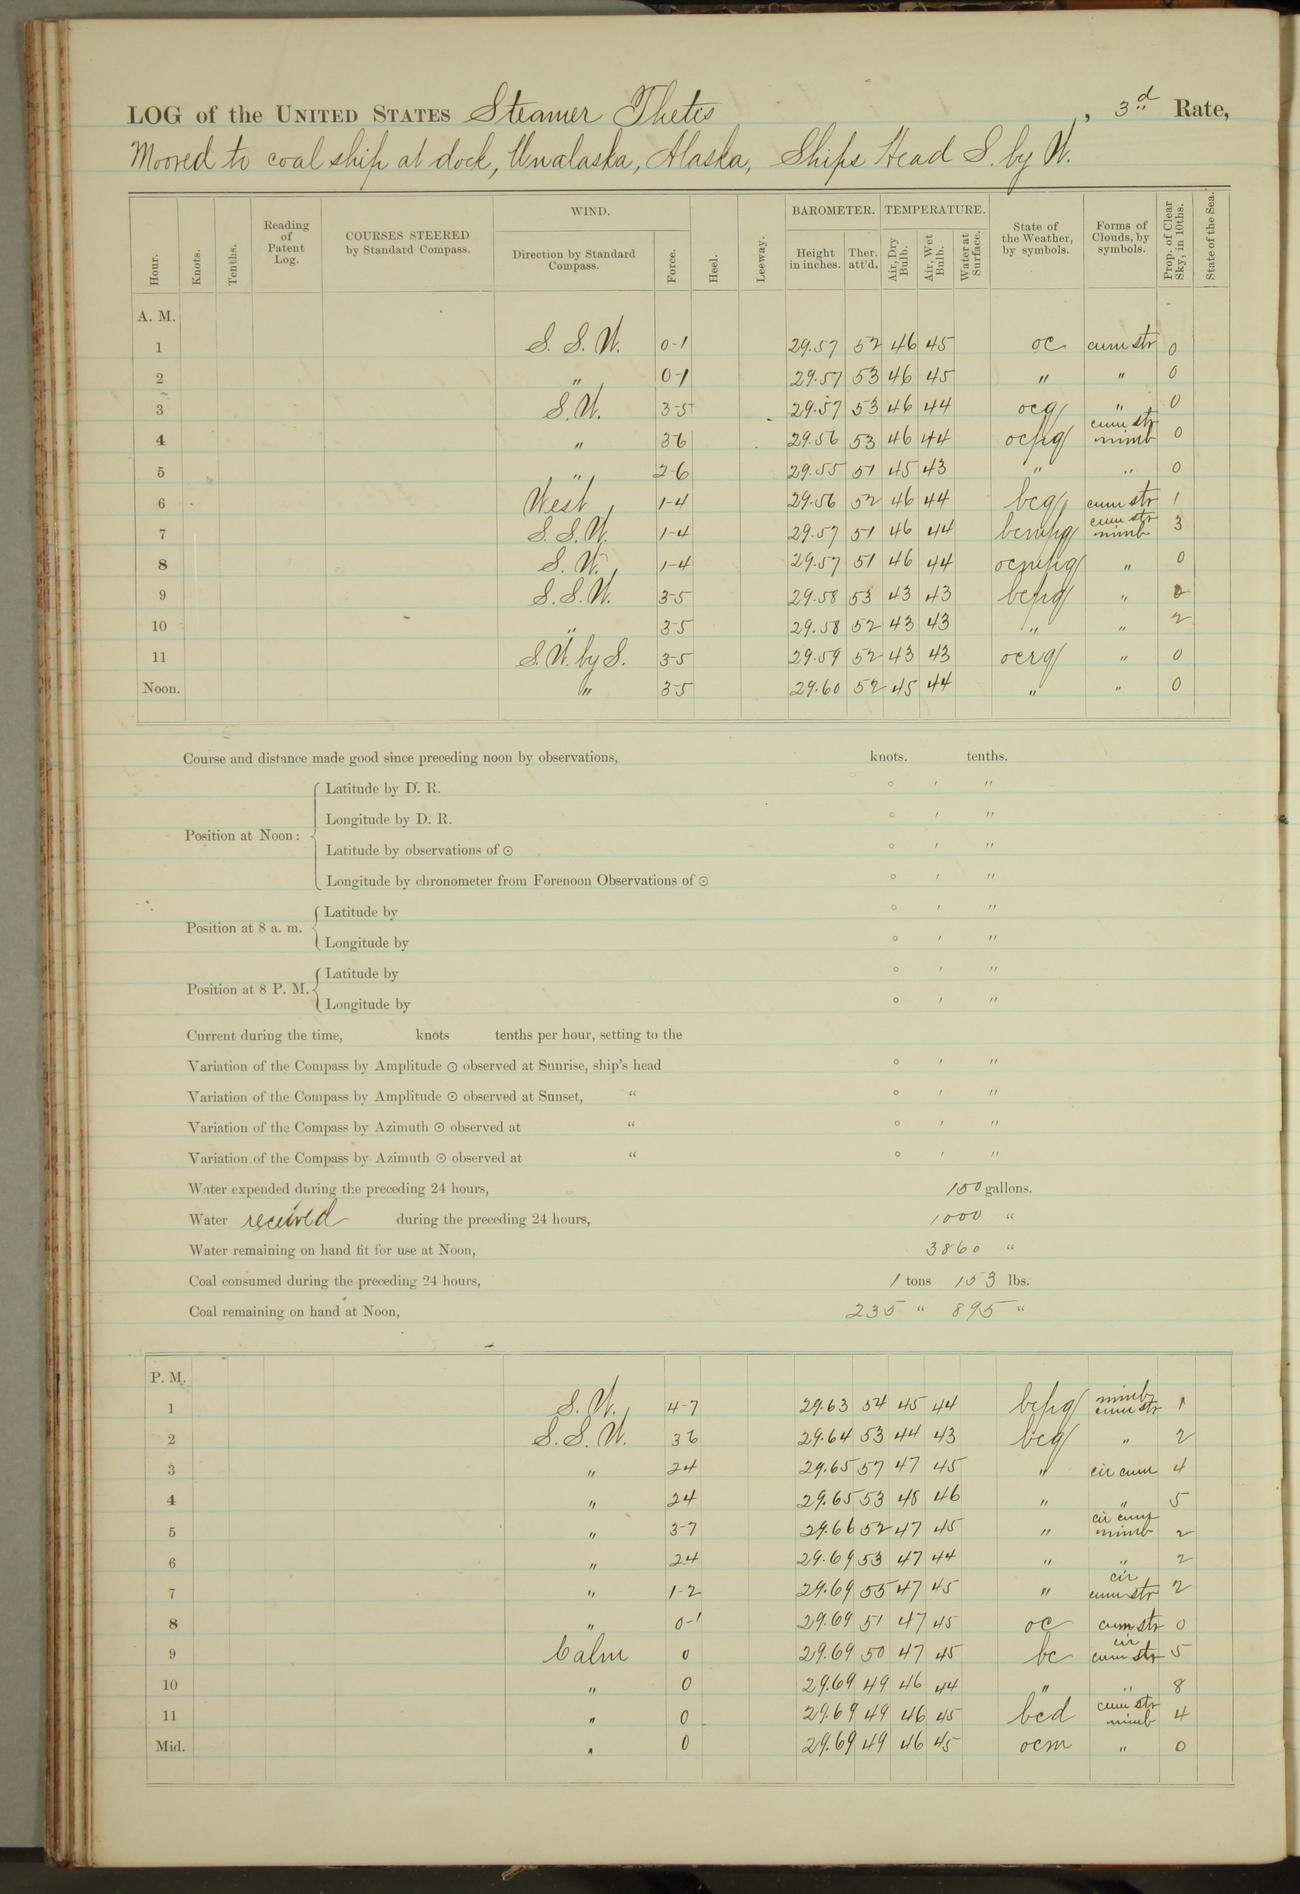 LOG of the UNITED STATES Steamer Thetis, 3d Rate,
Moored to coal ship at dock, Unalaska, Alaska, Ships Head S. by W.
Hour. Knots. Tenths. Reading of Patent Log. COURSES STEERED by Standard Compass. WIND. Direction by Standard Compass. Force. Heel. Leeway. BAROMETER. Height in inches. Ther. att'd. TEMPERATURE. Air, Dry Bulb. Air, Wet Bulb. Water at Surface. State of the Weather, by symbols. Forms of Clouds, by symbols. Prop. of Clear Sky, in 10ths. State of the Sea.
A. M.
1 S. S. W. 0-1 29.57 52 46 45 oc cum str 0
2 " 0-1 29.57 53 46 45 " " 0
3 S. W. 3-5 29.57 53 46 44 ocq " 0
4 " 3 6 29.56 53 46 44 ocpq cum str nimb 0
5 " 2-6 29.55 51 45 43 " " 0
6 West 1-4 29.56 52 46 44 bcq cum str 1
7 S. S. W. 1-4 29.57 51 46 44 bcmpq cum str nimb 3
8 S. W. 1-4 29.57 51 46 44 ocmpq " 0
9 S. S. W. 3-5 29.58 53 43 43 bcpq " 2
10 " 3-5 29.58 52 43 43 " " 2
11 S. W. by S. 3-5 29.59 52 43 43 ocrq " 0
Noon. " 3-5 29.60 52 45 44 " " 0
Course and distance made good since preceding noon by observations, knots. tenths.
Position at Noon:
Latitude by D. R. ° ' "
Longitude by D. R. ° ' "
Latitude by observations of ⊙ ° ' "
Longitude by chronometer from Forenoon Observations of ⊙ ° ' "
Position at 8 a. m.
Latitude by ° ' "
Longitude by ° ' "
Position at 8 P. M.
Latitude by ° ' "
Longitude by ° ' "
Current during the time, knots tenths per hour, setting to the
Variation of the Compass by Amplitude ⊙ observed at Sunrise, ship's head ° ' "
Variation of the Compass by Amplitude ⊙ observed at Sunset, " ° ' "
Variation of the Compass by Azimuth ⊙ observed at " ° ' "
Variation of the Compass by Azimuth ⊙ observed at " ° ' "
Water expended during the preceding 24 hours, 150 gallons.
Water received during the preceding 24 hours, 1000 "
Water remaining on hand fit for use at Noon, 3860 "
Coal consumed during the preceding 24 hours, 1 tons 153 lbs.
Coal remaining on hand at Noon, 235 " 895 "
P. M.
1 S. W. 4-7 29.63 54 45 44 bcpq nimb cum str 1
2 S. S. W. 3 6 29.64 53 44 43 bcq " 2
3 " 2 4 29.65 57 47 45 " cir cum 4
4 " 2 4 29.65 53 48 46 " " 5
5 " 3-7 29.66 52 47 45 " cir cum nimb 2
6 " 2 4 29.69 53 47 44 " " 2
7 " 1-2 29.69 55 47 45 " cir cum str 2
8 " 0-1 29.69 51 47 45 oc cum str 0
9 Calm 0 29.69 50 47 45 bc cir cum str 5
10 " 0 29.69 49 46 44 " " 8
11 " 0 29.69 49 46 45 bcd cum str nimb 4
Mid. " 0 29.69 49 46 45 ocm " 0